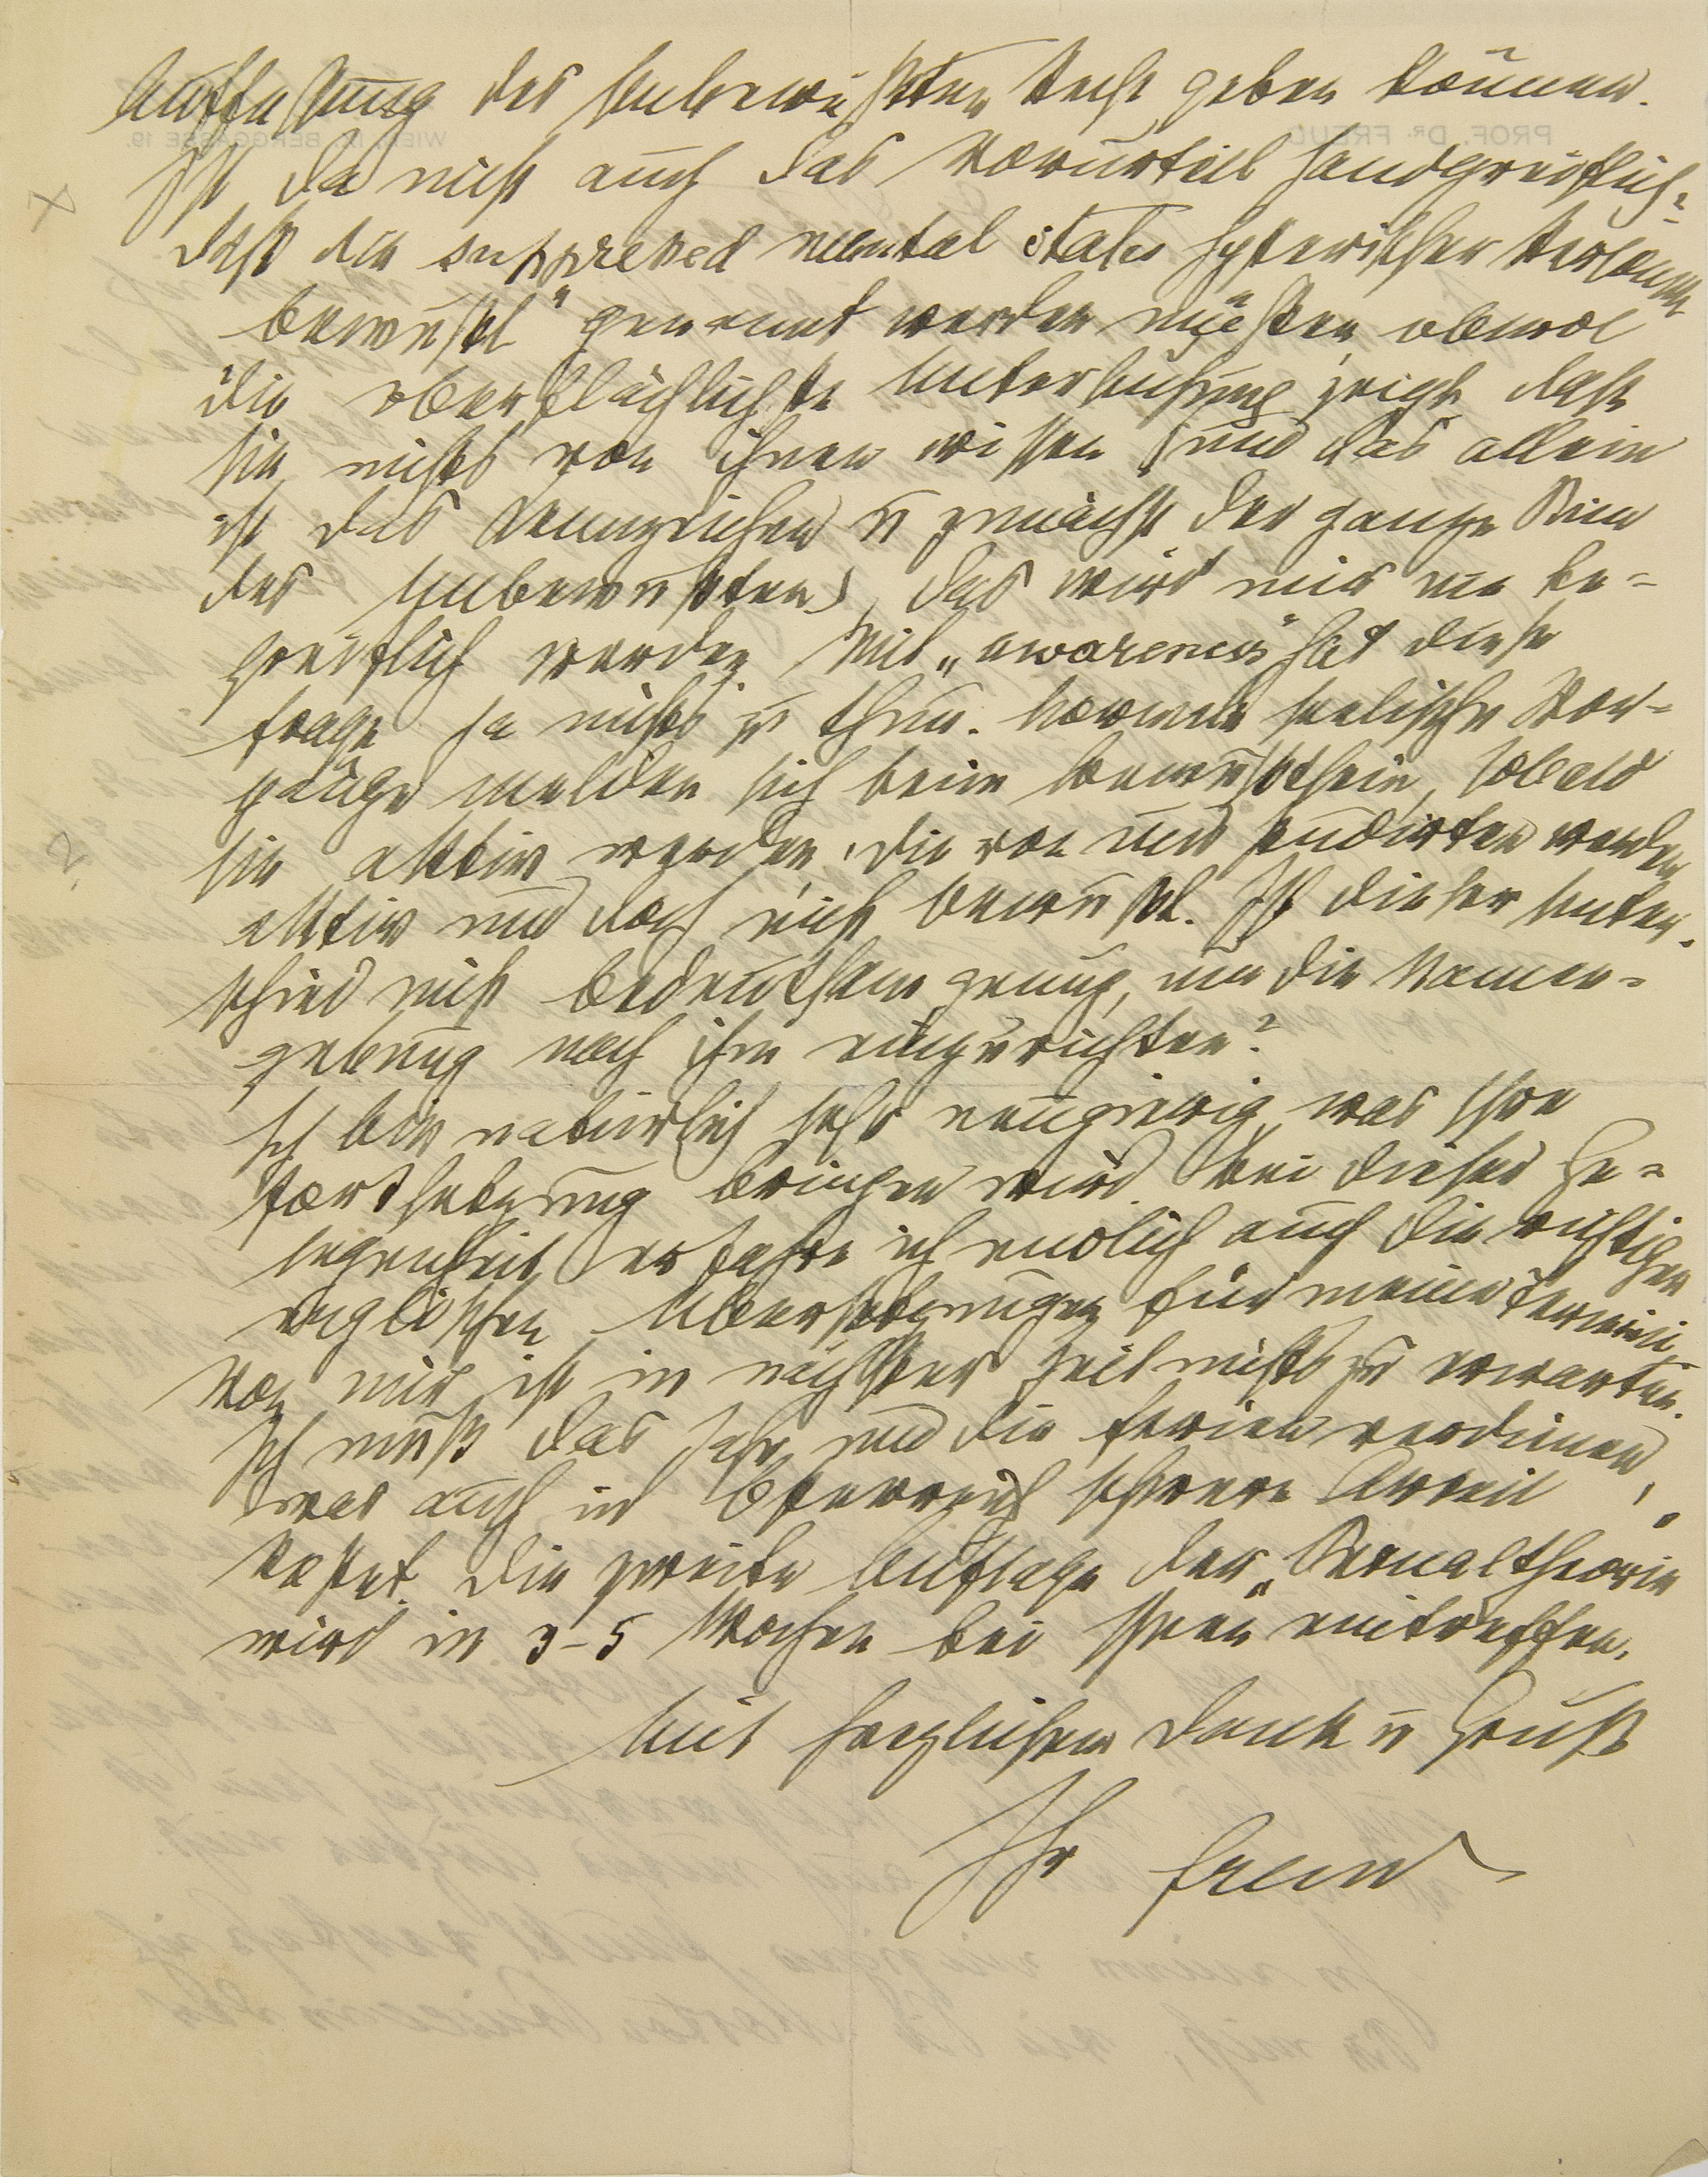 Auffassung des Unbewußten Recht geben können.
Ist da nicht auch das Vorurteil handgreiflich?
Daß die suppressed mental states hysterischer Personen
„bewußt“ genannt werden müßten obwol
die oberflächlichste Untersuchung zeigt daß
sie nichts von ihnen wissen (und das allein
ist das Kennzeichen u zunächst der ganze Sinn
des Unbewußten), das wird mir nie be-
greiflich werden. Mit „awareness“ hat diese
Frage ja nichts zu thun. Normale seelische Vor-
gänge melden sich beim Bewußtsein, sobald
sie aktiv werden, die von uns studirten werden
aktiv und doch nicht bewußt. Ist dieser Unter-
schied nicht bedeutsam genug, um die Namen-
gebung nach ihm einzurichten?
Ich bin natürlich sehr neugierig, was Ihre
Fortsetzung bringen wird. Bei dieser Ge-
legenheit erfahre ich endlich auch die richtigen
englischen Übersetzungen für meine Termini.
Von mir ist in nächster Zeit nichts zu erwarten.
Ich muß das Jahr und die Ferien verdienen,
was auch in Oesterreich schwere Arbeit
kostet. Die zweite Auflage der „Sexualtheorie“
wird in 3-5 Wochen bei Ihnen eintreffen.
Mit herzlichem Dank u Gruß
Ihr Freud
PROF. DR. FREUD
WIEN, IX. BERGGASSE 19.